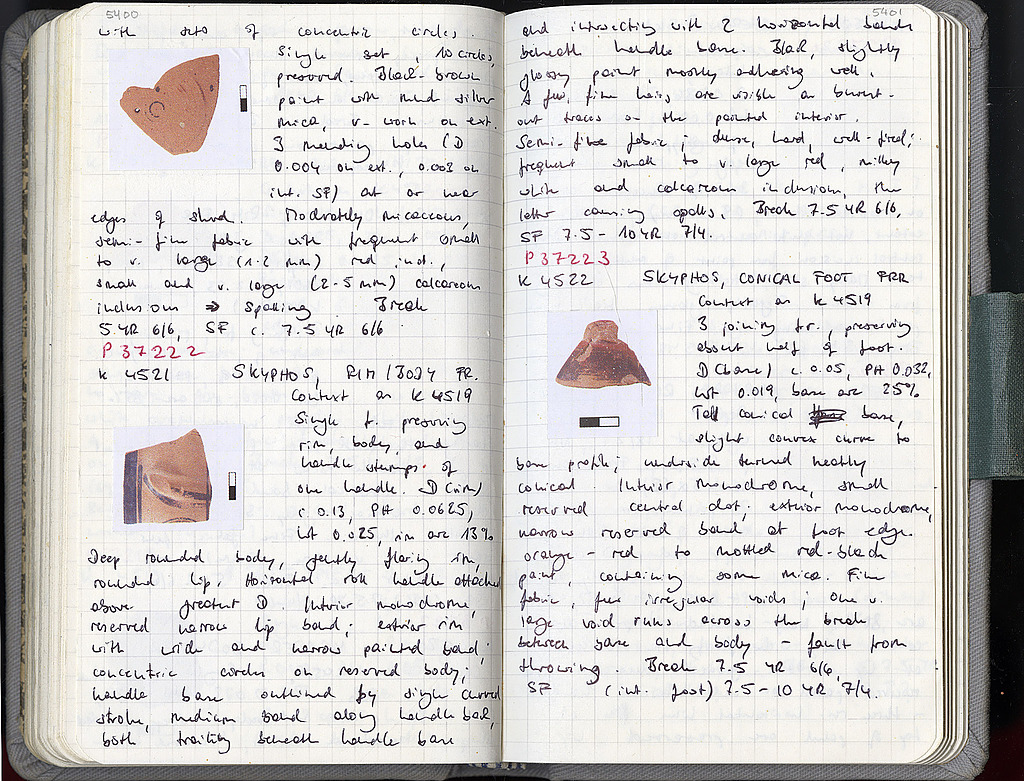 5400
with sets of concentric circles.
Single set, 10 circles,
preserved. Black-brown
paint with much silver
mica, v. worn on ext.
3 mending holes (D
0.004 on ext., 0.003 on
int. SF) at or near
edges of sherd. Moderately micaceous,
semi-fine fabric with frequent small
to v. large (1-2 mm) red incl.,
small and v. large (2-5 mm) calcareous
inclusions → spalling. Break
5 YR 6/6, SF c. 7.5 YR 6/6.
P 37222
K 4521 SKYPHOS, RIM/BODY FR.
Context as K 4519
Single fr. preserving
rim, body, and
handle stumps of
one handle. D (rim)
c 0.13, PH 0.0625,
WT 0.025, rim arc 13%
Deep rounded body, gently flaring rim,
rounded lip. Horizontal roll handle attached
above greatest D. Interior monochrome,
reserved narrow lip band; exterior rim
with wide and narrow painted band;
concentric circles on reserved body;
handle base outlined by single curved
stroke, medium band along handle bar,
both trailing beneath handle base
5401
and intersecting with 2 horizontal bands
beneath handle bone. Black, slightly
glossy paint, mostly adhering well.
A few, fine hairs are visible as burnt-
out traces on the painted interior.
Semi-fine fabric; dense, hard, well-fired;
frequent small to v. large red, milky
white and calcareous inclusions, the
latter causing spalls. Break 7.5 YR 6/6,
SF 7.5-10 YR 7/4.
P 37223
K 4522 SKYPHOS, CONICAL FOOT FRR
Context as K 4519
3 joining fr., preserving
about half of foot.
D (base) c. 0.05, PH 0.032,
WT 0.019, base arc 25%
Tall conical base,
slight convex curve to
base profile; underside turned neatly
conical. Interior monochrome, small
reserved central dot; exterior monochrome,
narrow reserved band at foot edge.
orange-red to mottled red-black
paint, containing some mica. Fine
fabric, few irregular voids; one v.
large void runs across the break
between base and body - fault from
throwing. Break 7.5 YR 6/6,
SF (int. foot) 7.5-10 YR 7/4.